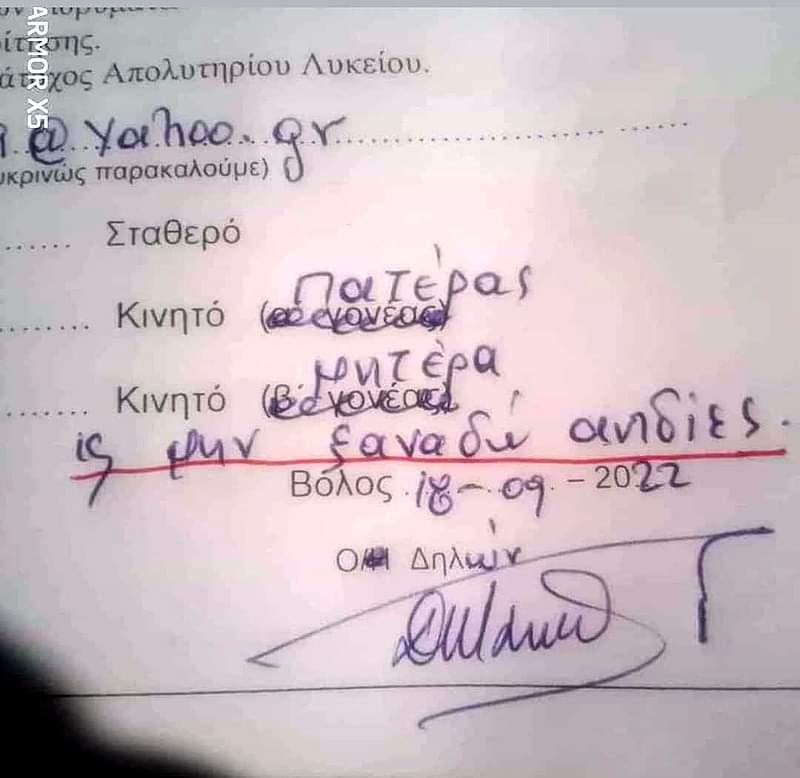 ARMOR X5
ίτησης.
άτοχος Απολυτηρίου Λυκείου.
@yahoo.gr
υκρινώς παρακαλούμε)
Σταθερό
Πατέρας
Κινητό (α' γονέας)
μητέρα
Κινητό (β' γονέας)
ις μην ξαναδώ αηδίες.
Βόλος 18-09-2022
Ο/Η Δηλών